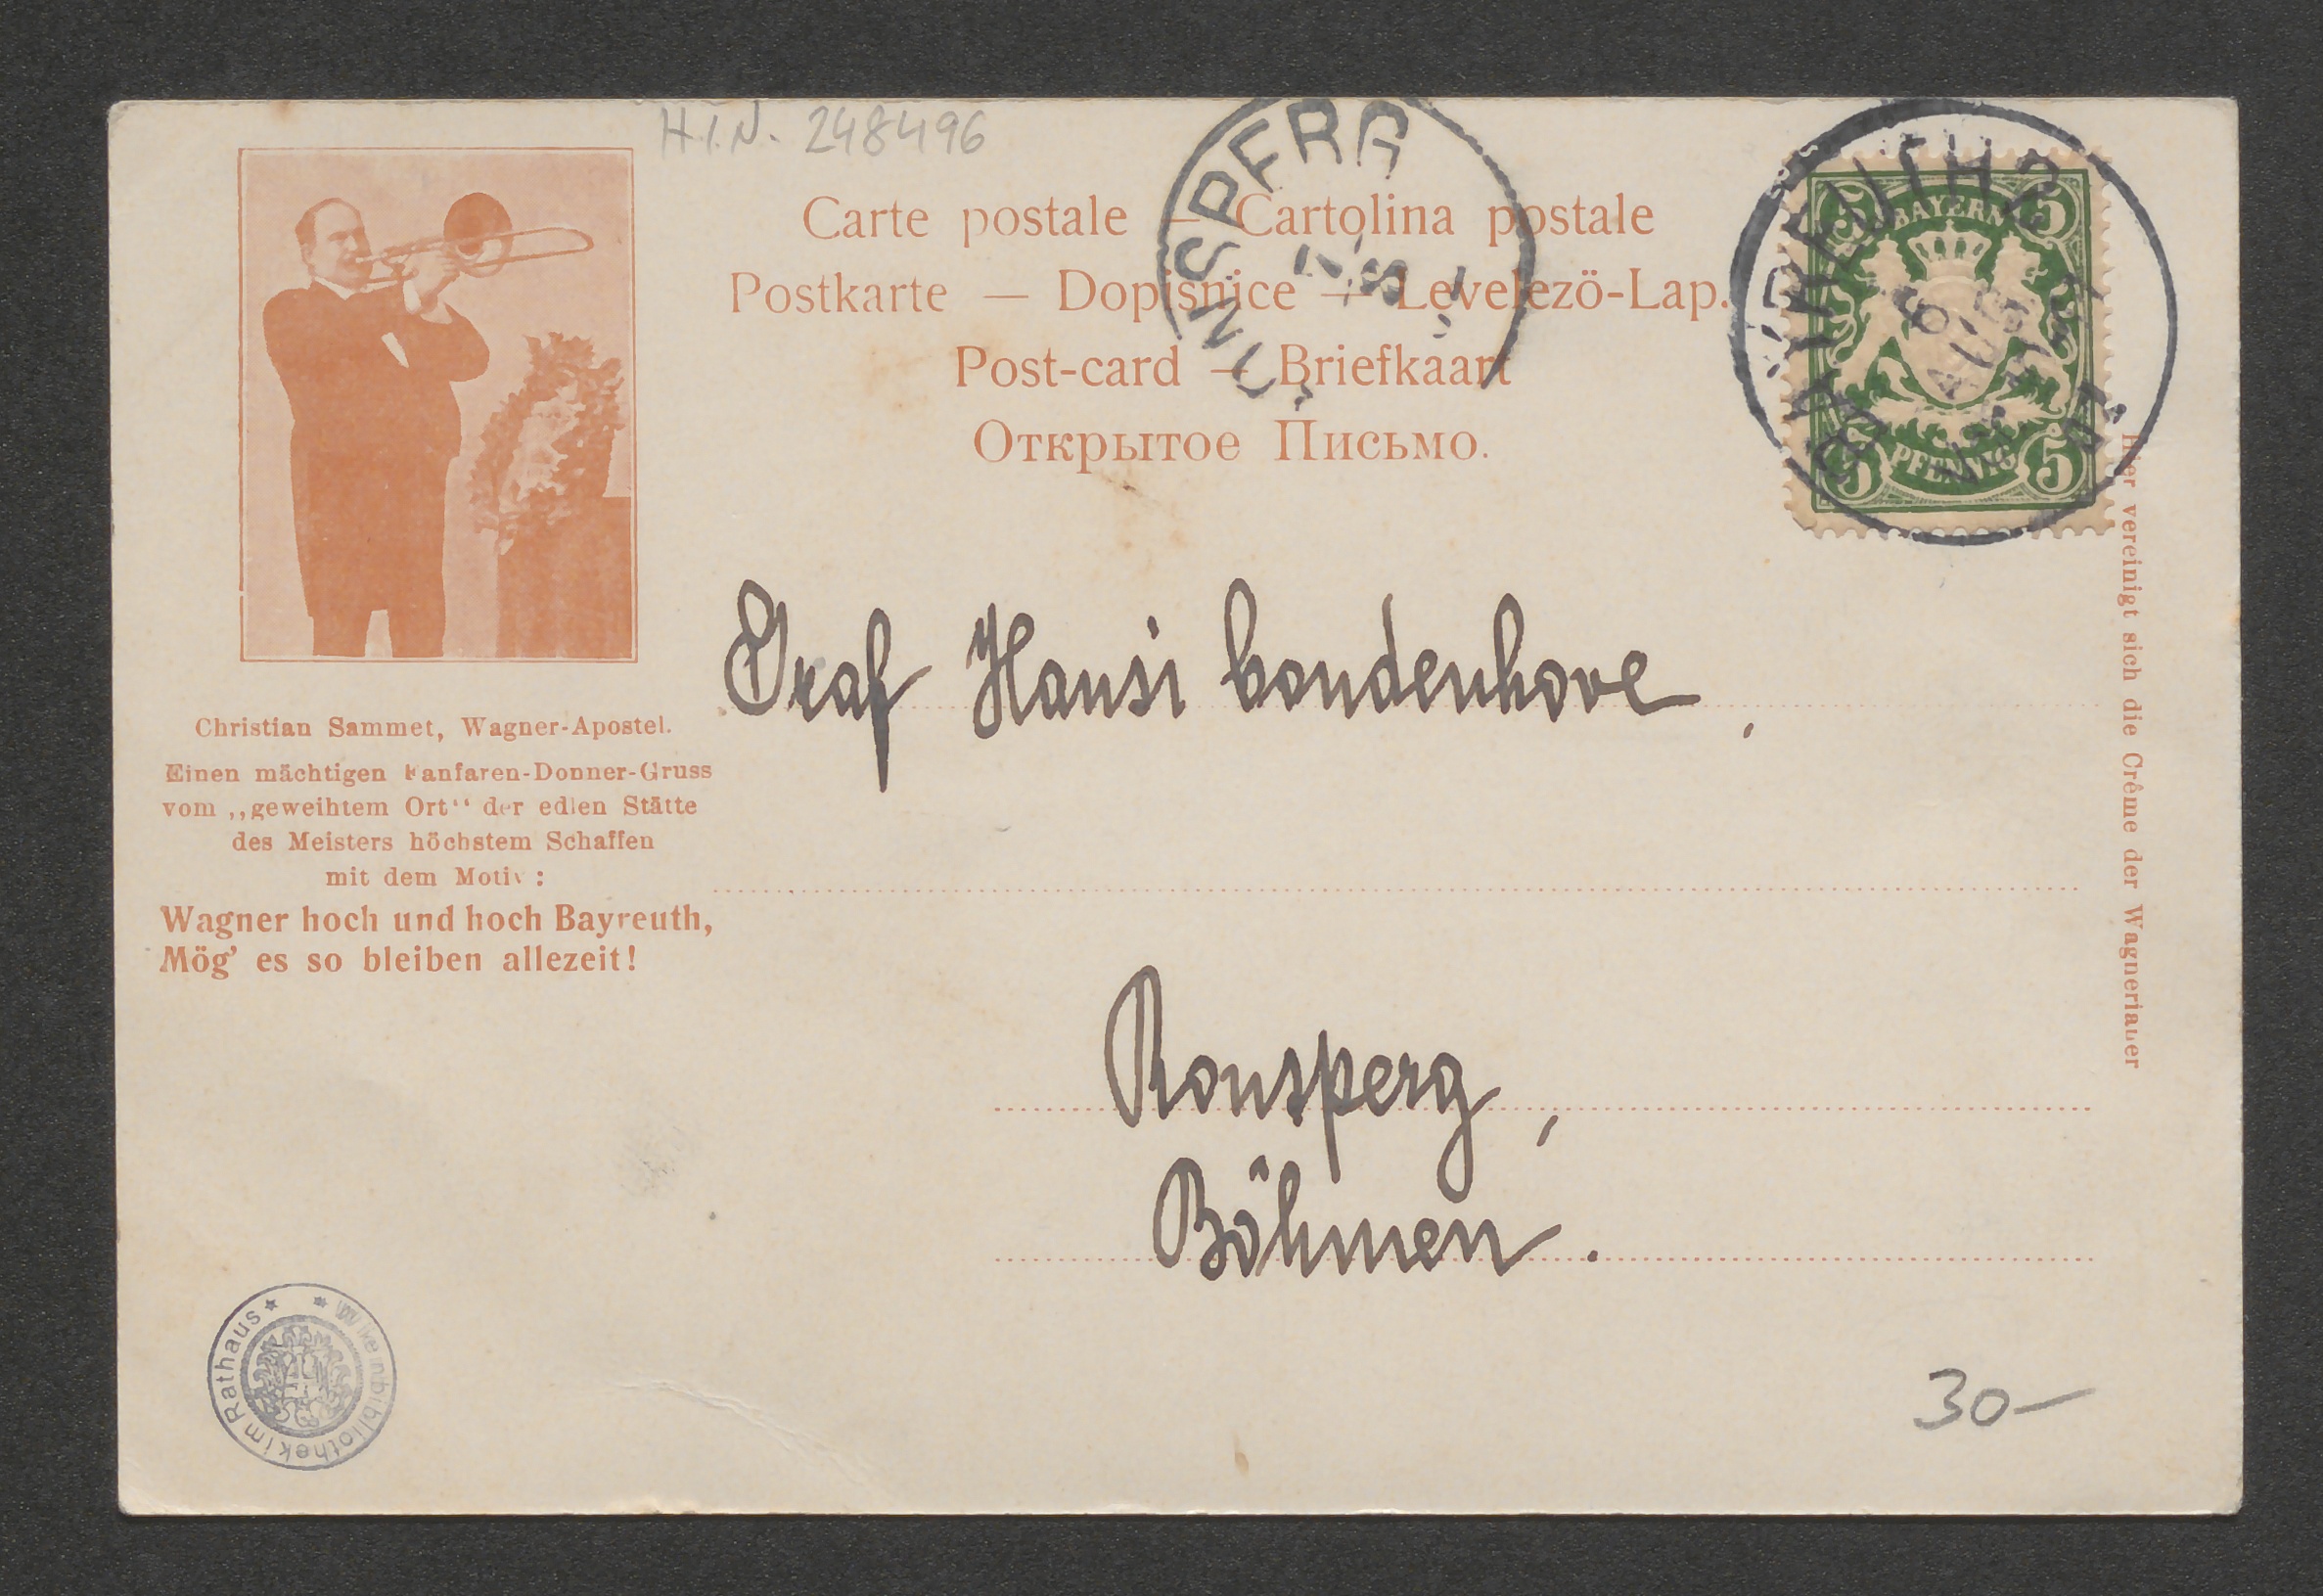 H.I.N. 248496
Carte postale — Cartolina postale
Postkarte — Dopisnice — Levelezö-Lap.
Post-card — Briefkaart
Открытое Письмо.
BAYREUTH 2
BAYERN
5 5
PFENNIG
5 5
Christian Sammet, Wagner-Apostel.
Einen mächtigen Fanfaren-Donner-Gruss
vom ,,geweihtem Ort“ der edlen Stätte
des Meisters höchstem Schaffen
mit dem Motiv:
Wagner hoch und hoch Bayreuth,
Mög’ es so bleiben allezeit!
Graf Hansi Coudenhove,
Ronsperg,
Böhmen.
Hier vereinigt sich die Crême der Wagnerianer
Wienbibliothek im Rathaus
30-